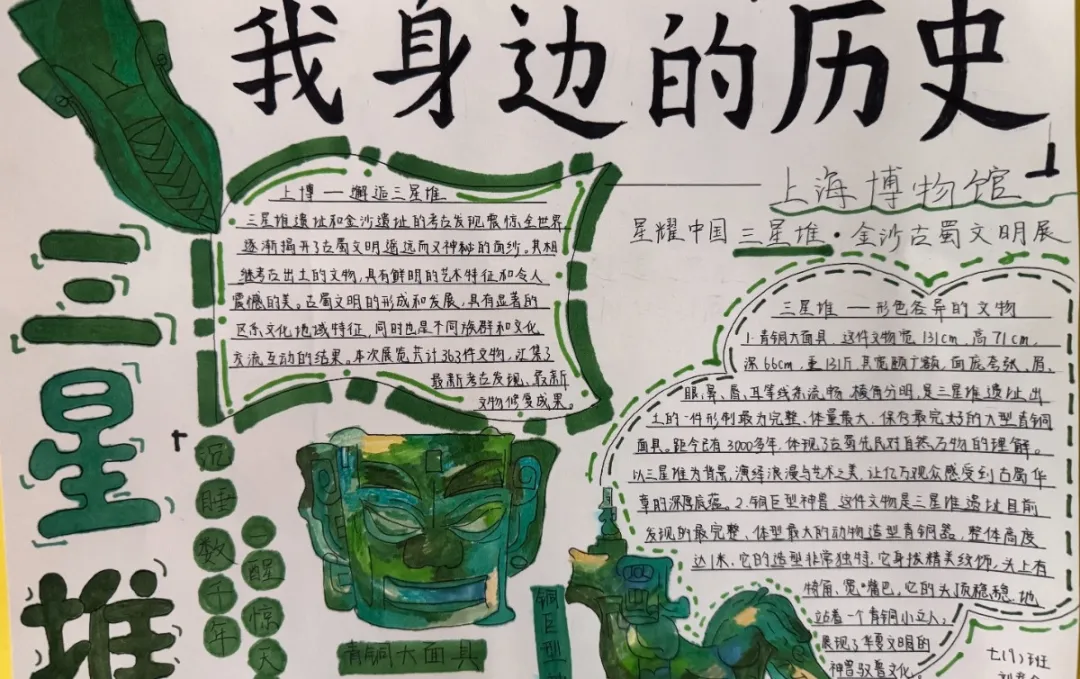 我身边的历史
上海博物馆
星耀中国 三星堆·金沙古蜀文明展
三星堆
上博——邂逅三星堆
三星堆遗址和金沙遗址的考古发现震惊全世界
逐渐揭开了古蜀文明遥远而又神秘的面纱。其相
继考古出土的文物,具有鲜明的艺术特征和令人
震憾的美。古蜀文明的形成和发展,具有显著的
区系文化地域特征,同时也是不同族群和文化
交流互动的结果。本次展览共计363件文物,汇集了
最新考古发现、最新
文物修复成果。
三星堆——形色各异的文物
1.青铜大面具,这件文物宽131cm,高71cm,
深66cm,重131斤其宽颐广额,面庞夸张,眉、
眼、鼻、唇、耳等线条流畅,棱角分明,是三星堆遗址出
土的一件形制最为完整、体量最大、保存最完好的大型青铜
面具。距今已有3000多年,体现了古蜀先民对自然万物的理解。
以三星堆为背景,演绎浪漫与艺术之美,让亿万观众感受到古蜀华
章的深厚底蕴。2.铜巨型神兽,这件文物是三星堆遗址目前
发现的最完整、体型最大的动物造型青铜器,整体高度
达1米,它的造型非常独特,它身披精美纹饰,头上有
犄角,宽嘴巴,它的头顶稳稳地
站着一个青铜小立人,
展现了华夏文明的
神兽驭兽文化。
沉睡数千年
一醒惊天
青铜大面具
铜巨型
七(9)班